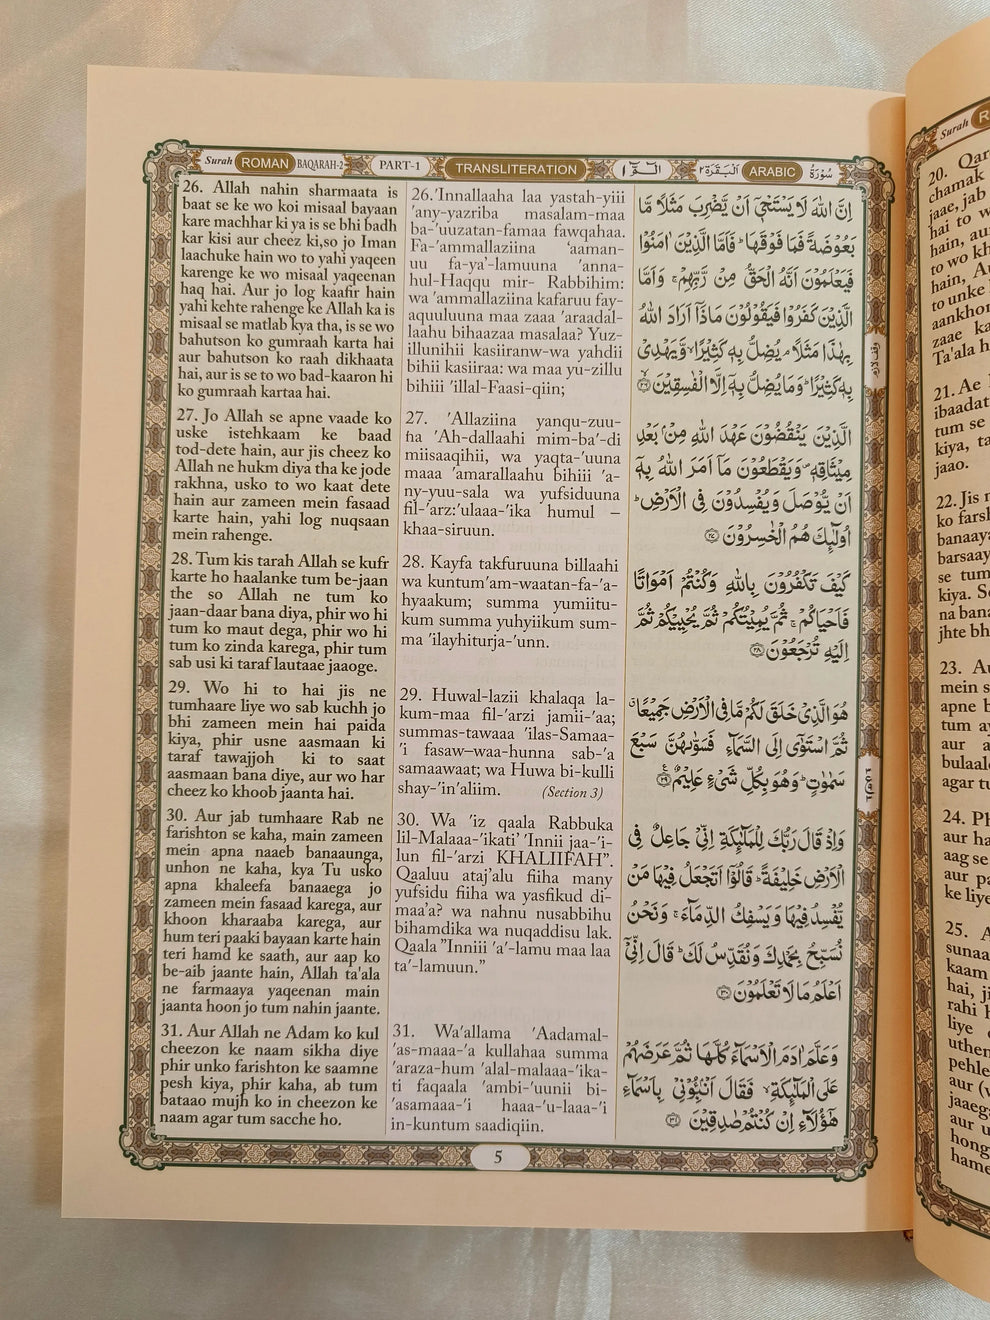 Surah ROMAN BAQARAH-2 PART-1 TRANSLITERATION الٓمّٓ ١ اَلْبَقَرَة ٢ ARABIC سُوْرَة
26. Allah nahin sharmaata is
baat se ke wo koi misaal bayaan
kare machhar ki ya is se bhi badh
kar kisi aur cheez ki,so jo Iman
laachuke hain wo to yahi yaqeen
karenge ke wo misaal yaqeenan
haq hai. Aur jo log kaafir hain
yahi kehte rahenge ke Allah ka is
misaal se matlab kya tha, is se wo
bahutson ko gumraah karta hai
aur bahutson ko raah dikhaata
hai, aur is se to wo bad-kaaron hi
ko gumraah kartaa hai.
27. Jo Allah se apne vaade ko
uske istehkaam ke baad
tod-dete hain, aur jis cheez ko
Allah ne hukm diya tha ke jode
rakhna, usko to wo kaat dete
hain aur zameen mein fasaad
karte hain, yahi log nuqsaan
mein rahenge.
28. Tum kis tarah Allah se kufr
karte ho haalanke tum be-jaan
the so Allah ne tum ko
jaan-daar bana diya, phir wo hi
tum ko maut dega, phir wo hi
tum ko zinda karega, phir tum
sab usi ki taraf lautaae jaaoge.
29. Wo hi to hai jis ne
tumhaare liye wo sab kuchh jo
bhi zameen mein hai paida
kiya, phir usne aasmaan ki
taraf tawajjoh ki to saat
aasmaan bana diye, aur wo har
cheez ko khoob jaanta hai.
30. Aur jab tumhaare Rab ne
farishton se kaha, main zameen
mein apna naaeb banaaunga,
unhon ne kaha, kya Tu usko
apna khaleefa banaaega jo
zameen mein fasaad karega, aur
khoon kharaaba karega, aur
hum teri paaki bayaan karte hain
teri hamd ke saath, aur aap ko
be-aib jaante hain, Allah ta'ala
ne farmaaya yaqeenan main
jaanta hoon jo tum nahin jaante.
31. Aur Allah ne Adam ko kul
cheezon ke naam sikha diye
phir unko farishton ke saamne
pesh kiya, phir kaha, ab tum
bataao mujh ko in cheezon ke
naam agar tum sacche ho.
26.'Innallaaha laa yastah-yiii
'any-yazriba masalam-maa
ba-'uuzatan-famaa fawqahaa.
Fa-'ammallaziina 'aaman-
uu fa-ya'-lamuuna 'anna-
hul-Haqqu mir- Rabbihim:
wa 'ammallaziina kafaruu fay-
aquuluuna maa zaaa 'araadal-
laahu bihaazaa masalaa? Yuz-
illunihii kasiiranw-wa yahdii
bihii kasiiraa: wa maa yu-zillu
bihiii 'illal-Faasi-qiin;
27. 'Allaziina yanqu-zuu-
na 'Ah-dallaahi mim-ba'-di
miisaaqihii, wa yaqta-'uuna
maaa 'amarallaahu bihiii 'a-
ny-yuu-sala wa yufsiduuna
fil-'arz:'ulaaa-'ika humul –
khaa-siruun.
28. Kayfa takfuruuna billaahi
wa kuntum'am-waatan-fa-'a-
hyaakum; summa yumiitu-
kum summa yuhyiikum sum-
ma 'ilayhiturja-'unn.
29. Huwal-lazii khalaqa la-
kum-maa fil-'arzi jamii-'aa;
summas-tawaaa 'ilas-Samaa-
'i fasaw–waa-hunna sab-'a
samaawaat; wa Huwa bi-kulli
shay-'in'aliim. (Section 3)
30. Wa 'iz qaala Rabbuka
lil-Malaaa-'ikati 'Innii jaa-'i-
lun fil-'arzi KHALIIFAH”.
Qaaluu ataj'alu fiiha many
yufsidu fiiha wa yasfikud di-
maa'a? wa nahnu nusabbihu
bihamdika wa nuqaddisu lak.
Qaala ”Inniii 'a'-lamu maa laa
ta'-lamuun.”
31. Wa'allama 'Aadamal-
'as-maaa-'a kullahaa summa
'araza-hum 'alal-malaaa-'ika-
ti faqaala 'ambi-'uunii bi-
'asamaaa-'i haaa-'u-laaa-'i
in-kuntum saadiqiin.
اِنَّ اللّٰهَ لَا يَسْتَحْيٖٓ اَنْ يَّضْرِبَ مَثَلًا مَّا
بَعُوْضَةً فَمَا فَوْقَهَا ؕ فَاَمَّا الَّذِيْنَ اٰمَنُوْا
فَيَعْلَمُوْنَ اَنَّهُ الْحَقُّ مِنْ رَّبِّهِمْ ۚ وَاَمَّا
الَّذِيْنَ كَفَرُوْا فَيَقُوْلُوْنَ مَاذَاۤ اَرَادَ اللّٰهُ
بِهٰذَا مَثَلًا ۘ يُضِلُّ بِهٖ كَثِيْرًا ۙ وَّيَهْدِيْ
بِهٖ كَثِيْرًا ؕ وَمَا يُضِلُّ بِهٖۤ اِلَّا الْفٰسِقِيْنَ ۙ ٢٦
الَّذِيْنَ يَنْقُضُوْنَ عَهْدَ اللّٰهِ مِنْۢ بَعْدِ
مِيْثَاقِهٖ ۪ وَيَقْطَعُوْنَ مَاۤ اَمَرَ اللّٰهُ بِهٖۤ
اَنْ يُّوْصَلَ وَيُفْسِدُوْنَ فِى الْاَرْضِ ؕ
اُولٰٓئِكَ هُمُ الْخٰسِرُوْنَ ٢٧
كَيْفَ تَكْفُرُوْنَ بِاللّٰهِ وَكُنْتُمْ اَمْوَاتًا
فَاَحْيَاكُمْ ۚ ثُمَّ يُمِيْتُكُمْ ثُمَّ يُحْيِيْكُمْ ثُمَّ
اِلَيْهِ تُرْجَعُوْنَ ٢٨
هُوَ الَّذِيْ خَلَقَ لَكُمْ مَّا فِى الْاَرْضِ جَمِيْعًا ۗ
ثُمَّ اسْتَوٰٓى اِلَى السَّمَآءِ فَسَوّٰىهُنَّ سَبْعَ
سَمٰوٰتٍ ؕ وَهُوَ بِكُلِّ شَىْءٍ عَلِيْمٌ ٢٩
وَاِذْ قَالَ رَبُّكَ لِلْمَلٰٓئِكَةِ اِنِّيْ جَاعِلٌ فِى
الْاَرْضِ خَلِيْفَةً ؕ قَالُوْۤا اَتَجْعَلُ فِيْهَا مَنْ
يُّفْسِدُ فِيْهَا وَيَسْفِكُ الدِّمَآءَ ۚ وَنَحْنُ
نُسَبِّحُ بِحَمْدِكَ وَنُقَدِّسُ لَكَ ؕ قَالَ اِنِّيْۤ
اَعْلَمُ مَا لَا تَعْلَمُوْنَ ٣٠
وَعَلَّمَ اٰدَمَ الْاَسْمَآءَ كُلَّهَا ثُمَّ عَرَضَهُمْ
عَلَى الْمَلٰٓئِكَةِ ۙ فَقَالَ اَنْۢبِـُٔوْنِيْ بِاَسْمَآءِ
هٰٓؤُلَآءِ اِنْ كُنْتُمْ صٰدِقِيْنَ ٣١
5
Surah
20. Qar
chamak
jaae, jab
hai to w
hain, aur
to wo kh
hain, A
to unke
aankhon
zaae ka
Ta'ala h
21. Ae
ibaadat
tum se
kiya, ta
jaao.
22. Jis n
ko farsh
banaaya
barsaay
se tum
kiya. S
na bana
jhte bh
23. Au
mein s
apne b
tum ay
aur a
bulaale
agar tu
24. Ph
aur ha
aag se
aur pa
ke liye
25. A
sunaa
kaam
hai, ji
rahi h
liye
uthen
pehle
aur (v
jaaeg
aur u
hong
hame